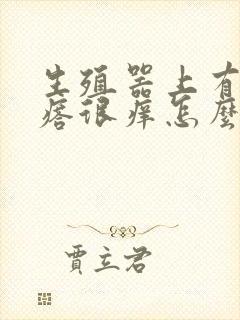 生殖器上有
痞很痒怎麼
賈立君